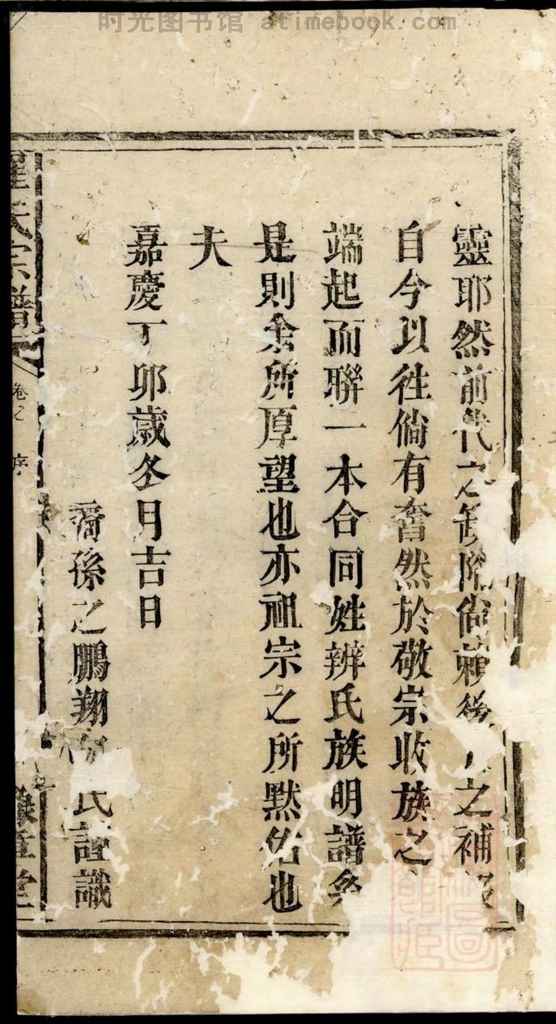 时光图书馆 atimebook.com
靈耶然前代之缺陷尚賴後之補
自今以徃倘有奮然於敬宗收族之
端起而聯一本合同姓辨氏族明譜
是則余所厚望也亦祖宗之所默佑也
夫
嘉慶丁卯歲冬月吉日
裔孫之鵬翔氏謹識
氏宗譜
卷之 序
堂